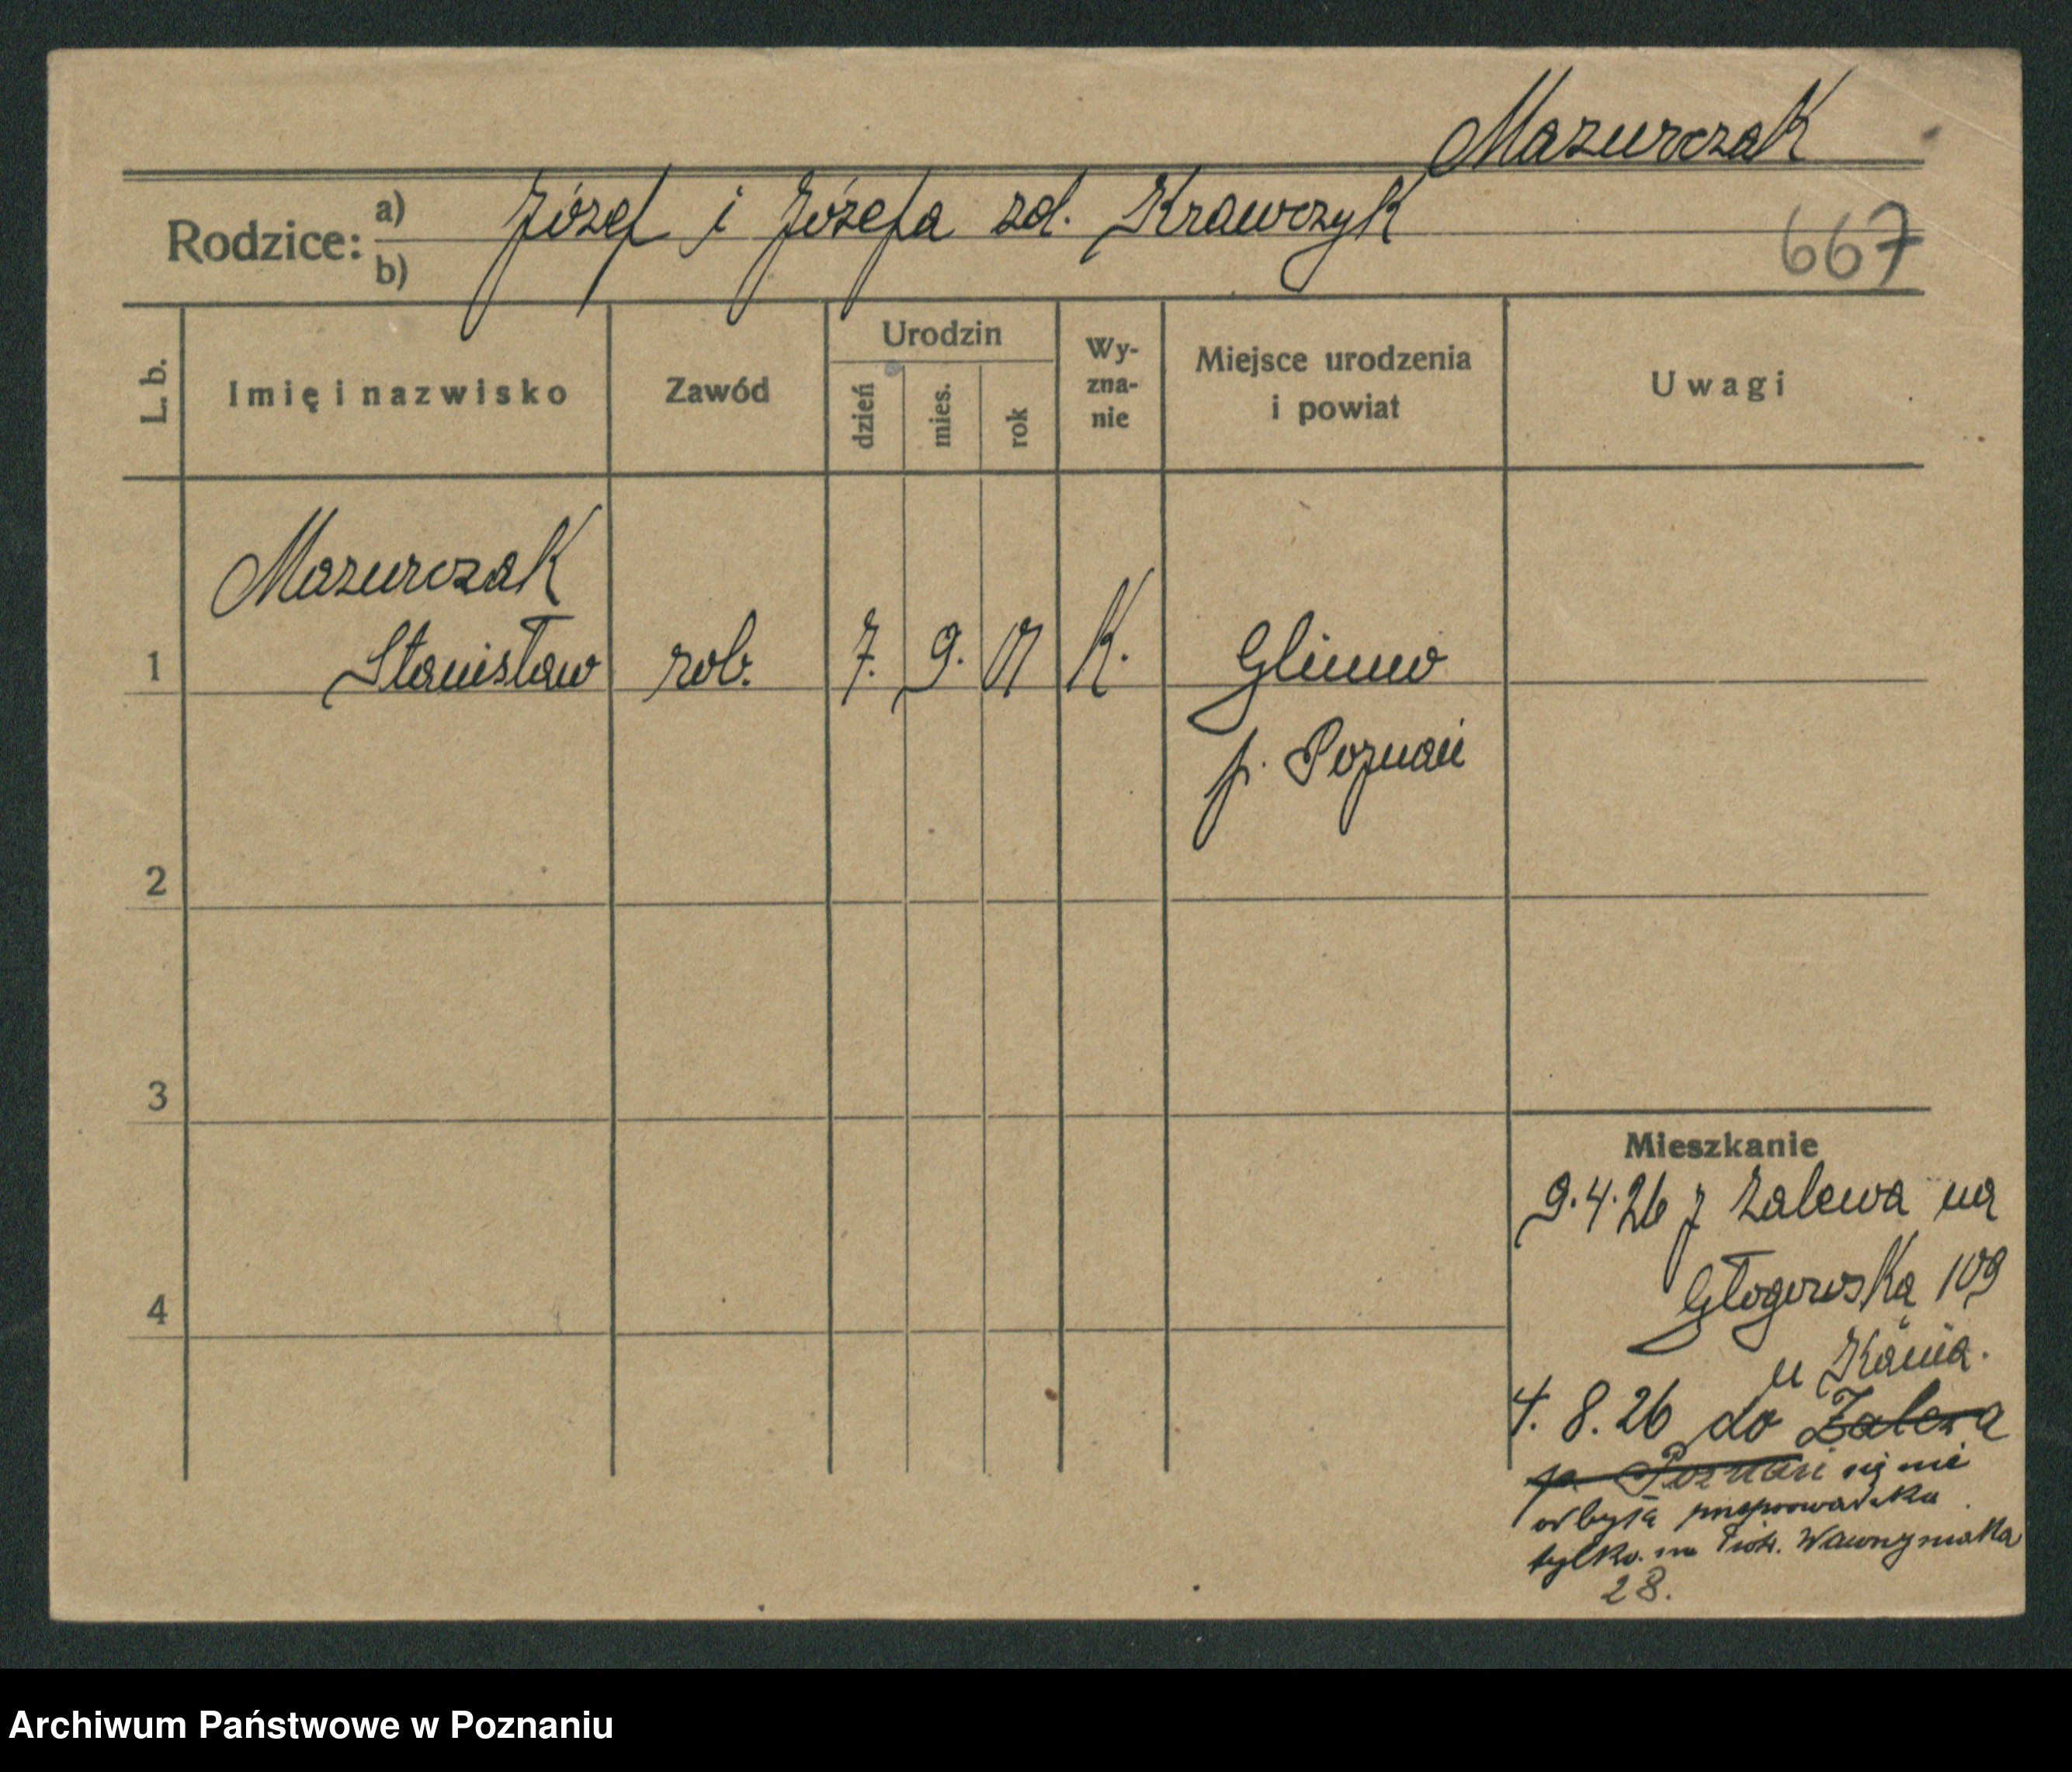 Mazurczak
Rodzice: a) Józef i Józefa zd. Krawczyk
b)
667
L. b.
Imię i nazwisko
Zawód
Urodzin
dzień
mies.
rok
Wy-
zna-
nie
Miejsce urodzenia
i powiat
Uwagi
Mazurczak
1 Stanisław rob. 7. 9. 01 K. Glinno
p. Poznań
2
3
4
Mieszkanie
9.4.26 z Zalewa na
Głogowską 109
u Kania.
4. 8. 26 do Zalewa
p. Poznań się nie
odbyła przeprowadzka
tylko na Piotr. Wawrzyniaka
28.
Archiwum Państwowe w Poznaniu